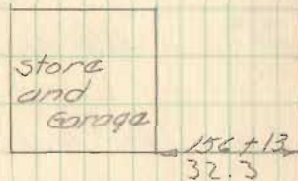 store
and
Garage
156+13
32.3